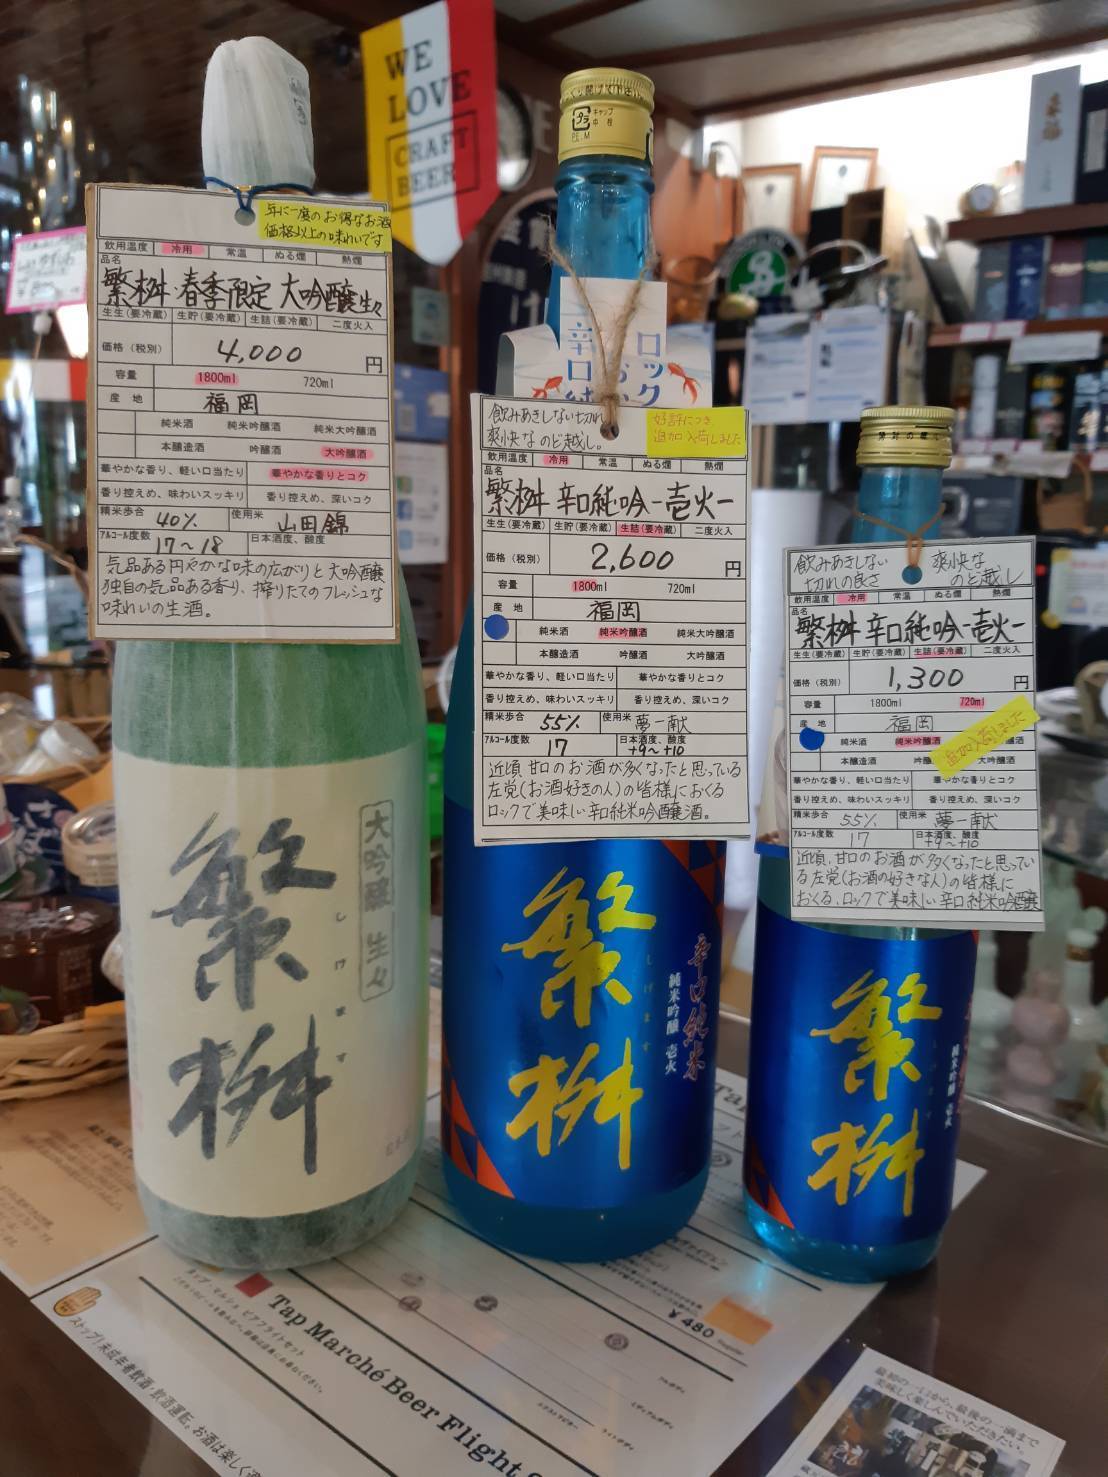 WE
LOVE
CRAFT
BEER
年に一度のお得なお酒
価格以上の味わいです
飲用温度 冷用 常温 ぬる燗 熱燗
品名
繁桝・春季限定 大吟醸生々
生生(要冷蔵) 生貯(要冷蔵) 生詰(要冷蔵) 二度火入
価格(税別) 4,000 円
容量 1800ml 720ml
産地 福岡
純米酒 純米吟醸酒 純米大吟醸酒
本醸造酒 吟醸酒 大吟醸酒
華やかな香り、軽い口当たり 華やかな香りとコク
香り控えめ、味わいスッキリ 香り控えめ、深いコク
精米歩合 40% 使用米 山田錦
アルコール度数 17~18 日本酒度、酸度
気品ある円やかな味の広がりと大吟醸
独自の気品ある香り、搾りたてのフレッシュな
味わいの生酒。
大吟醸 生々
繁桝
しげます
キャップ
中栓
PE.M
ロック
辛口純
飲みあきしない切れ
爽快なのど越し。
好評につき
追加入荷しました
飲用温度 冷用 常温 ぬる燗 熱燗
品名
繁桝 辛口純吟ー壱火ー
生生(要冷蔵) 生貯(要冷蔵) 生詰(要冷蔵) 二度火入
価格(税別) 2,600 円
容量 1800ml 720ml
産地 福岡
純米酒 純米吟醸酒 純米大吟醸酒
本醸造酒 吟醸酒 大吟醸酒
華やかな香り、軽い口当たり 華やかな香りとコク
香り控えめ、味わいスッキリ 香り控えめ、深いコク
精米歩合 55% 使用米 夢一献
アルコール度数 17 日本酒度、酸度 +9~+10
近頃甘口のお酒が多くなったと思っている
左党(お酒好きの人)の皆様におくる
ロックで美味しい辛口純米吟醸酒。
繁桝
しげます
辛口純米
純米吟醸 壱火
飲みあきしない 爽快な
切れの良さ のど越し
飲用温度 冷用 常温 ぬる燗 熱燗
品名
繁桝 辛口純吟ー壱火ー
生生(要冷蔵) 生貯(要冷蔵) 生詰(要冷蔵) 二度火入
価格(税別) 1,300 円
容量 1800ml 720ml
産地 福岡
追加入荷しました
純米酒 純米吟醸酒
本醸造酒 吟醸 大吟醸酒
華やかな香り、軽い口当たり 華やかな香りとコク
香り控えめ、味わいスッキリ 香り控えめ、深いコク
精米歩合 55% 使用米 夢一献
アルコール度数 17 日本酒度、酸度 +9~+10
近頃、甘口のお酒が多くなったと思ってい
る左党(お酒の好きな人)の皆様に
おくる、ロックで美味しい辛口純米吟醸
繁桝
純米吟醸 壱火
タップ・マルシェ ビアフライトセット
Tap Marché Beer Flight
¥480
ストップ!未成年者飲酒・飲酒運転。お酒は楽しく
最初の一口から、最後の一滴まで
美味しく楽しんでいただきたい。